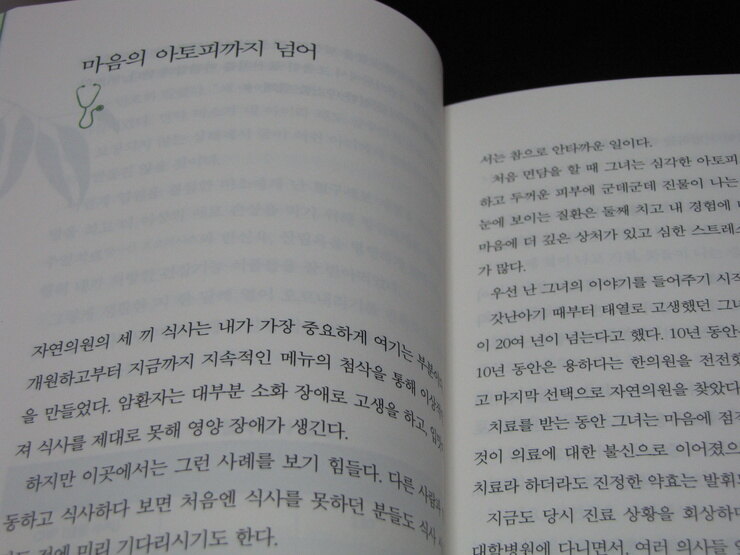 마음의 아토피까지 넘어
자연의원의 세 끼 식사는 내가 가장 중요하게 여기는
개원하고부터 지금까지 지속적인 메뉴의 첨삭을 통해
을 만들었다. 암환자는 대부분 소화 장애로 고생을 하고,
져 식사를 제대로 못해 영양 장애가 생긴다.
하지만 이곳에서는 그런 사례를 보기 힘들다. 다른
동하고 식사하다 보면 처음엔 식사를 못하던 분들도 식사
전에 미리 기다리시기도 한다.
서는 참으로 안타까운 일이다.
처음 면담을 할 때 그녀는 심각한 아토피
하고 두꺼운 피부에 군데군데 진물이 나는
눈에 보이는 질환은 둘째 치고 내 경험에
마음에 더 깊은 상처가 있고 심한 스트레스
가 많다.
우선 난 그녀의 이야기를 들어주기 시작
갓난아기 때부터 태열로 고생했던 그녀
이 20여 년이 넘는다고 했다. 10년 동안
10년 동안은 용하다는 한의원을 전전했
고 마지막 선택으로 자연의원을 찾았다
치료를 받는 동안 그녀는 마음에 점
것이 의료에 대한 불신으로 이어졌으
치료라 하더라도 진정한 약효는 발휘
지금도 당시 진료 상황을 회상하
대학병원에 다니면서, 여러 의사들